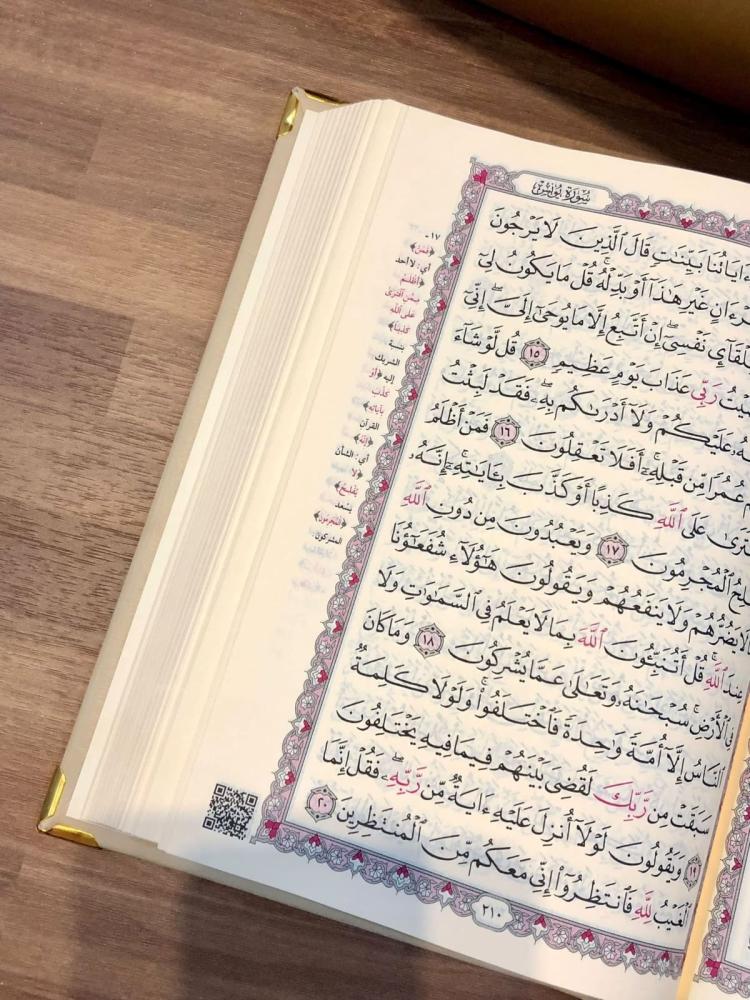 سُورَةُ يُونُسَ
ءَايَاتُنَا بَيِّنَٰتٍ قَالَ ٱلَّذِينَ لَا يَرْجُونَ
غَيْرِ هَٰذَآ أَوْ بَدِّلْهُ ۚ قُلْ مَا يَكُونُ لِىٓ
نَفْسِىٓ ۖ إِنْ أَتَّبِعُ إِلَّا مَا يُوحَىٰٓ إِلَىَّ ۖ إِنِّىٓ
رَبِّى عَذَابَ يَوْمٍ عَظِيمٍ ١٥ قُل لَّوْ شَآءَ
عَلَيْكُمْ وَلَآ أَدْرَىٰكُم بِهِۦ ۖ فَقَدْ لَبِثْتُ
عُمُرًا مِّن قَبْلِهِۦٓ ۚ أَفَلَا تَعْقِلُونَ ١٦ فَمَنْ أَظْلَمُ
عَلَى ٱللَّهِ كَذِبًا أَوْ كَذَّبَ بِـَٔايَٰتِهِۦٓ ۚ إِنَّهُۥ
ٱلْمُجْرِمُونَ ١٧ وَيَعْبُدُونَ مِن دُونِ ٱللَّهِ
لَا يَضُرُّهُمْ وَلَا يَنفَعُهُمْ وَيَقُولُونَ هَٰٓؤُلَآءِ شُفَعَٰٓؤُنَا
عِندَ ٱللَّهِ ۚ قُلْ أَتُنَبِّـُٔونَ ٱللَّهَ بِمَا لَا يَعْلَمُ فِى ٱلسَّمَٰوَٰتِ وَلَا
فِى ٱلْأَرْضِ ۚ سُبْحَٰنَهُۥ وَتَعَٰلَىٰ عَمَّا يُشْرِكُونَ ١٨ وَمَا كَانَ
ٱلنَّاسُ إِلَّآ أُمَّةً وَٰحِدَةً فَٱخْتَلَفُوا۟ ۚ وَلَوْلَا كَلِمَةٌ
سَبَقَتْ مِن رَّبِّكَ لَقُضِىَ بَيْنَهُمْ فِيمَا فِيهِ يَخْتَلِفُونَ
١٩ وَيَقُولُونَ لَوْلَآ أُنزِلَ عَلَيْهِ ءَايَةٌ مِّن رَّبِّهِۦ ۖ فَقُلْ إِنَّمَا
ٱلْغَيْبُ لِلَّهِ فَٱنتَظِرُوٓا۟ إِنِّى مَعَكُم مِّنَ ٱلْمُنتَظِرِينَ ٢٠
٢١٠
١٧-
﴿فَمَنْ﴾
أي: لا أحد
﴿أَظْلَمُ
مِمَّنِ ٱفْتَرَىٰ
عَلَى ٱللَّهِ
كَذِبًا﴾
بنسبة
الشريك
إليه ﴿أَوْ
كَذَّبَ
بِآيَاتِهِ﴾
القرآن
﴿إِنَّهُ﴾
أي: الشأن
﴿لَا
يُفْلِحُ﴾
يسعد
﴿ٱلْمُجْرِمُونَ﴾
المشركون.